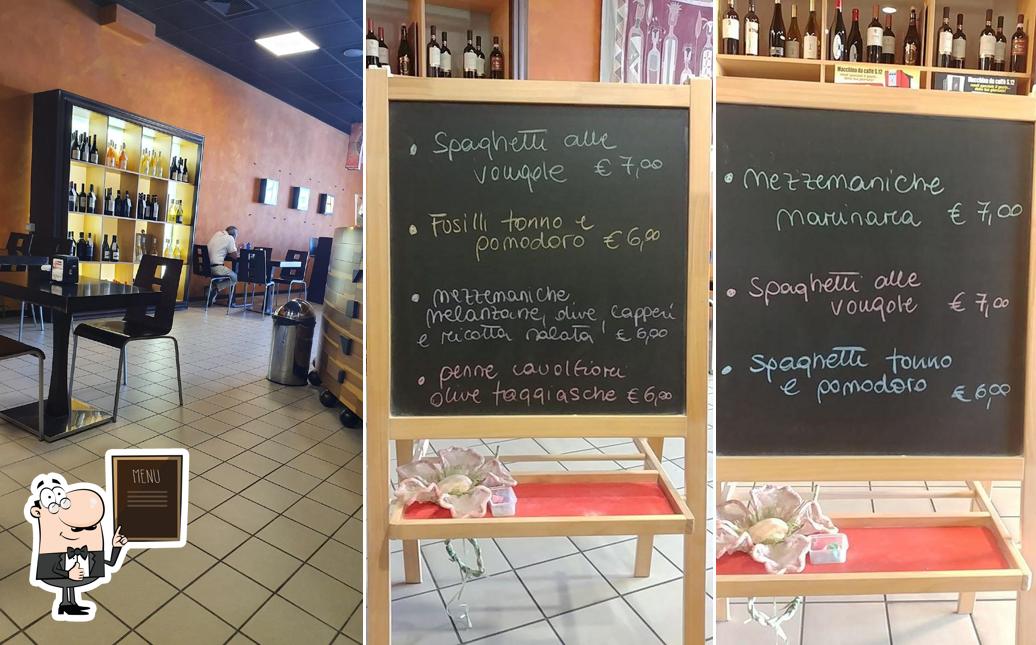 MENU
• Spaghetti alle
vongole € 7,00
• Fusilli tonno e
pomodoro € 6,00
• mezzemaniche
melanzane, olive, capperi
e ricotta salata € 6,00
• penne cavolfiori
olive taggiasche € 6,00
Macchina da caffè S.12
• Mezzemaniche
marinara € 7,00
• Spaghetti alle
vongole € 7,00
• Spaghetti tonno
e pomodoro € 6,00